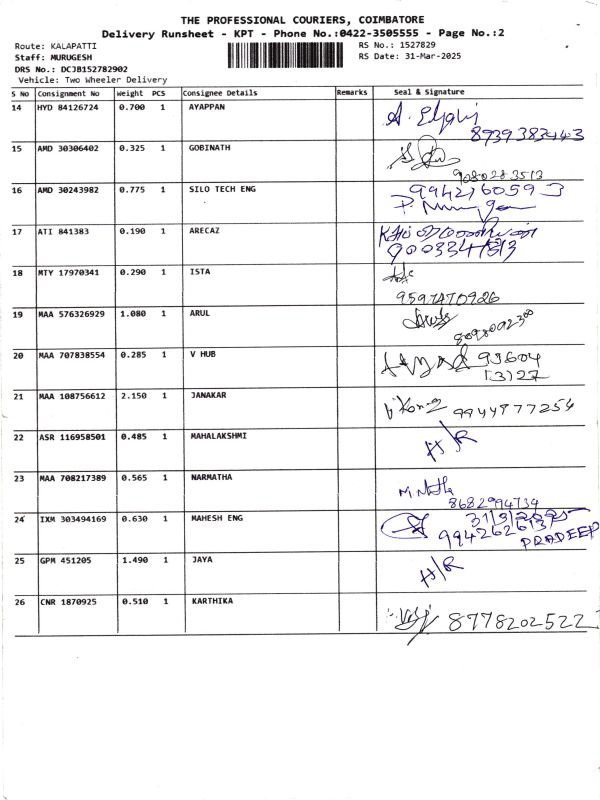 THE PROFESSIONAL COURIERS, COIMBATORE
Delivery Runsheet - KPT - Phone No.:0422-3505555 - Page No.:2
Route: KALAPATTI
Staff: MURUGESH
DRS No.: DCJB152782902
Vehicle: Two Wheeler Delivery
RS No.: 1527829
RS Date: 31-Mar-2025
S No Consignment No Weight PCS Consignee Details Remarks Seal & Signature
14 HYD 84126724 0.700 1 AYAPPAN
8939383443
15 AMD 30306402 0.325 1 GOBINATH
9080283513
16 AMD 30243982 0.775 1 SILO TECH ENG 9942160593
17 ATI 841383 0.190 1 ARECAZ
18 MTY 17970341 0.290 1 ISTA
9597470926
19 MAA 576326929 1.080 1 ARUL
20 MAA 707838554 0.285 1 V HUB 93604
13127
21 MAA 108756612 2.150 1 JANAKAR 9944977254
22 ASR 116958501 0.485 1 MAHALAKSHMI H/R
23 MAA 708217389 0.565 1 NARMATHA
8682994734
24 IXM 303494169 0.630 1 MAHESH ENG 31/3/2025
9942626137 PRADEEP
25 GPM 451205 1.490 1 JAYA H/R
26 CNR 1870925 0.510 1 KARTHIKA 8778202522